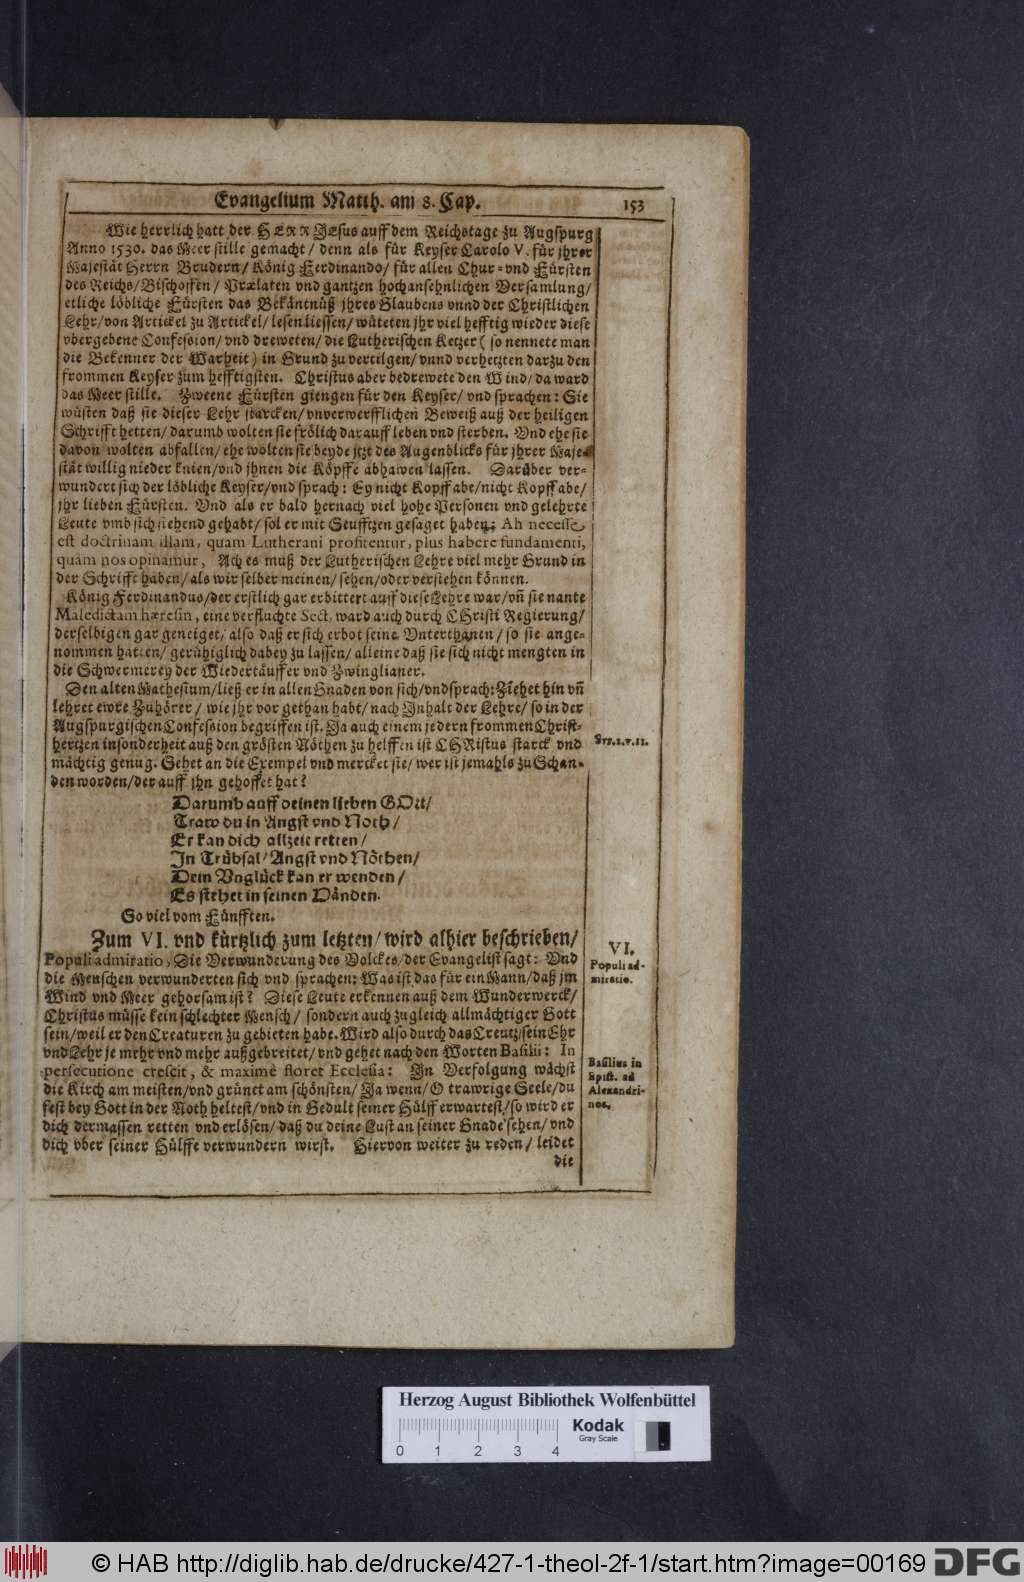 Evangelium Matth. am 8. Cap.
153
Wie herrlich hatt der HERR JEsus auff dem Reichstage zu Augspurg
Anno 1530. das Meer stille gemacht / denn als für Keyser Carolo V. für jhrer
Majestät Herrn Brudern / König Ferdinando / für allen Chur- vnd Fürsten
des Reichs / Bischoffen / Prælaten vnd gantzen hochansehnlichen Versamlung /
etliche löbliche Fürsten das Bekäntnüß jhres Glaubens vnnd der Christlichen
Lehr / von Artickel zu Artickel / lesen liessen / wüteten jhr viel hefftig wieder diese
vbergebene Confession / vnd dreweten / die Lutherischen Ketzer ( so nennete man
die Bekenner der Warheit ) in Grund zu vertilgen / vnnd verhetzten darzu den
frommen Keyser zum hefftigsten. Christus aber bedrewete den Wind / da ward
das Meer stille. Zweene Fürsten giengen für den Keyser / vnd sprachen: Sie
wüsten daß sie dieser Lehr starcken / vnverwerfflichen Beweiß auß der heiligen
Schrifft hetten / darumb wolten sie frölich darauff leben vnd sterben. Vnd ehe sie
davon wolten abfallen / ehe wolten sie beyde jtzt des Augenblicks für jhrer Maje-
stät willig nieder knien / vnd jhnen die Köpffe abhawen lassen. Darüber ver-
wundert sich der löbliche Keyser / vnd sprach: Ey nicht Kopff abe / nicht Kopff abe /
jhr lieben Fürsten. Vnd als er bald hernach viel hohe Personen vnd gelehrte
Leute vmb sich stehend gehabt / sol er mit Seufftzen gesaget haben: Ah necesse
est doctrinam illam, quam Lutherani profitentur, plus habere fundamenti,
quàm nos opinamur, Ach es muß der Lutherischen Lehre viel mehr Grund in
der Schrifft haben / als wir selber meinen / sehen / oder verstehen können.
König Ferdinandus / der erstlich gar erbittert auff diese Lehre war / vñ sie nante
Maledictam hæresin, eine verfluchte Sect, ward auch durch CHristi Regierung /
derselbigen gar geneiget / also daß er sich erbot seine Vnterthanen / so sie ange-
nommen hatten / gerühiglich dabey zu lassen / alleine daß sie sich nicht mengten in
die Schwermerey der Wiedertäuffer vnd Zwinglianer.
Den alten Mathesium / ließ er in allen Gnaden von sich / vnd sprach: Ziehet hin vñ
lehret ewre Zuhörer / wie jhr vor gethan habt / nach Inhalt der Lehre / so in der
Augspurgischen Confession begriffen ist. Ja auch einem jedern frommen Christ-
hertzen insonderheit auß den grösten Nöthen zu helffen ist CHRistus starck vnd
mächtig genug. Sehet an die Exempel vnd mercket sie / wer ist jemahls zu Schan-
den worden / der auff jhn gehoffet hat?
Syr. 2. v. 11.
Darumb auff deinen lieben GOtt /
Traw du in Angst vnd Noth /
Er kan dich allzeit retten /
In Trübsal / Angst vnd Nöthen /
Dein Vnglück kan er wenden /
Es stehet in seinen Händen.
So viel vom Fünfften.
Zum VI. vnd kürtzlich zum letzten / wird alhier beschrieben /
Populi admiratio, Die Verwunderung des Volckes / der Evangelist sagt: Vnd
die Menschen verwunderten sich vnd sprachen: Was ist das für ein Mann / daß jm
Wind vnd Meer gehorsam ist? Diese Leute erkennen auß dem Wunderwerck /
Christus müsse kein schlechter Mensch / sondern auch zugleich allmächtiger Gott
sein / weil er den Creaturen zu gebieten habe. Wird also durch das Creutz / sein Ehr
vnd Lehr je mehr vnd mehr außgebreitet / vnd gehet nach den Worten Basilii: In
persecutione crescit, & maximè floret Ecclesia: In Verfolgung wächst
die Kirch am meisten / vnd grünet am schönsten / Ja wenn / O trawrige Seele / du
fest bey Gott in der Noth heltest / vnd in Gedult seiner Hülff erwartest / so wird er
dich dermassen retten vnd erlösen / daß du deine Lust an seiner Gnade sehen / vnd
dich vber seiner Hülffe verwundern wirst. Hiervon weiter zu reden / leidet
die
VI.
Populi ad-
miratio.
Basilius in
Epist. ad
Alexandri-
nos.
Herzog August Bibliothek Wolfenbüttel
0 1 2 3 4
Kodak
Gray Scale
© HAB http://diglib.hab.de/drucke/427-1-theol-2f-1/start.htm?image=00169
DFG